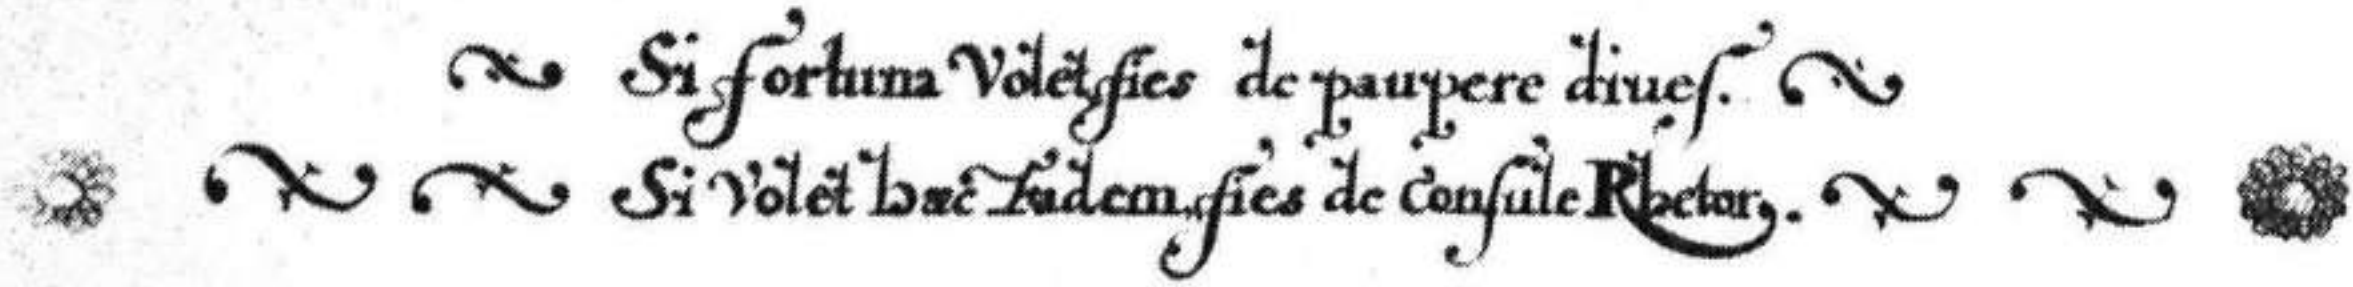 Si fortuna Volet, fies de paupere diues.
Si Volet haec Eadem, fies de Consule Rhetor.